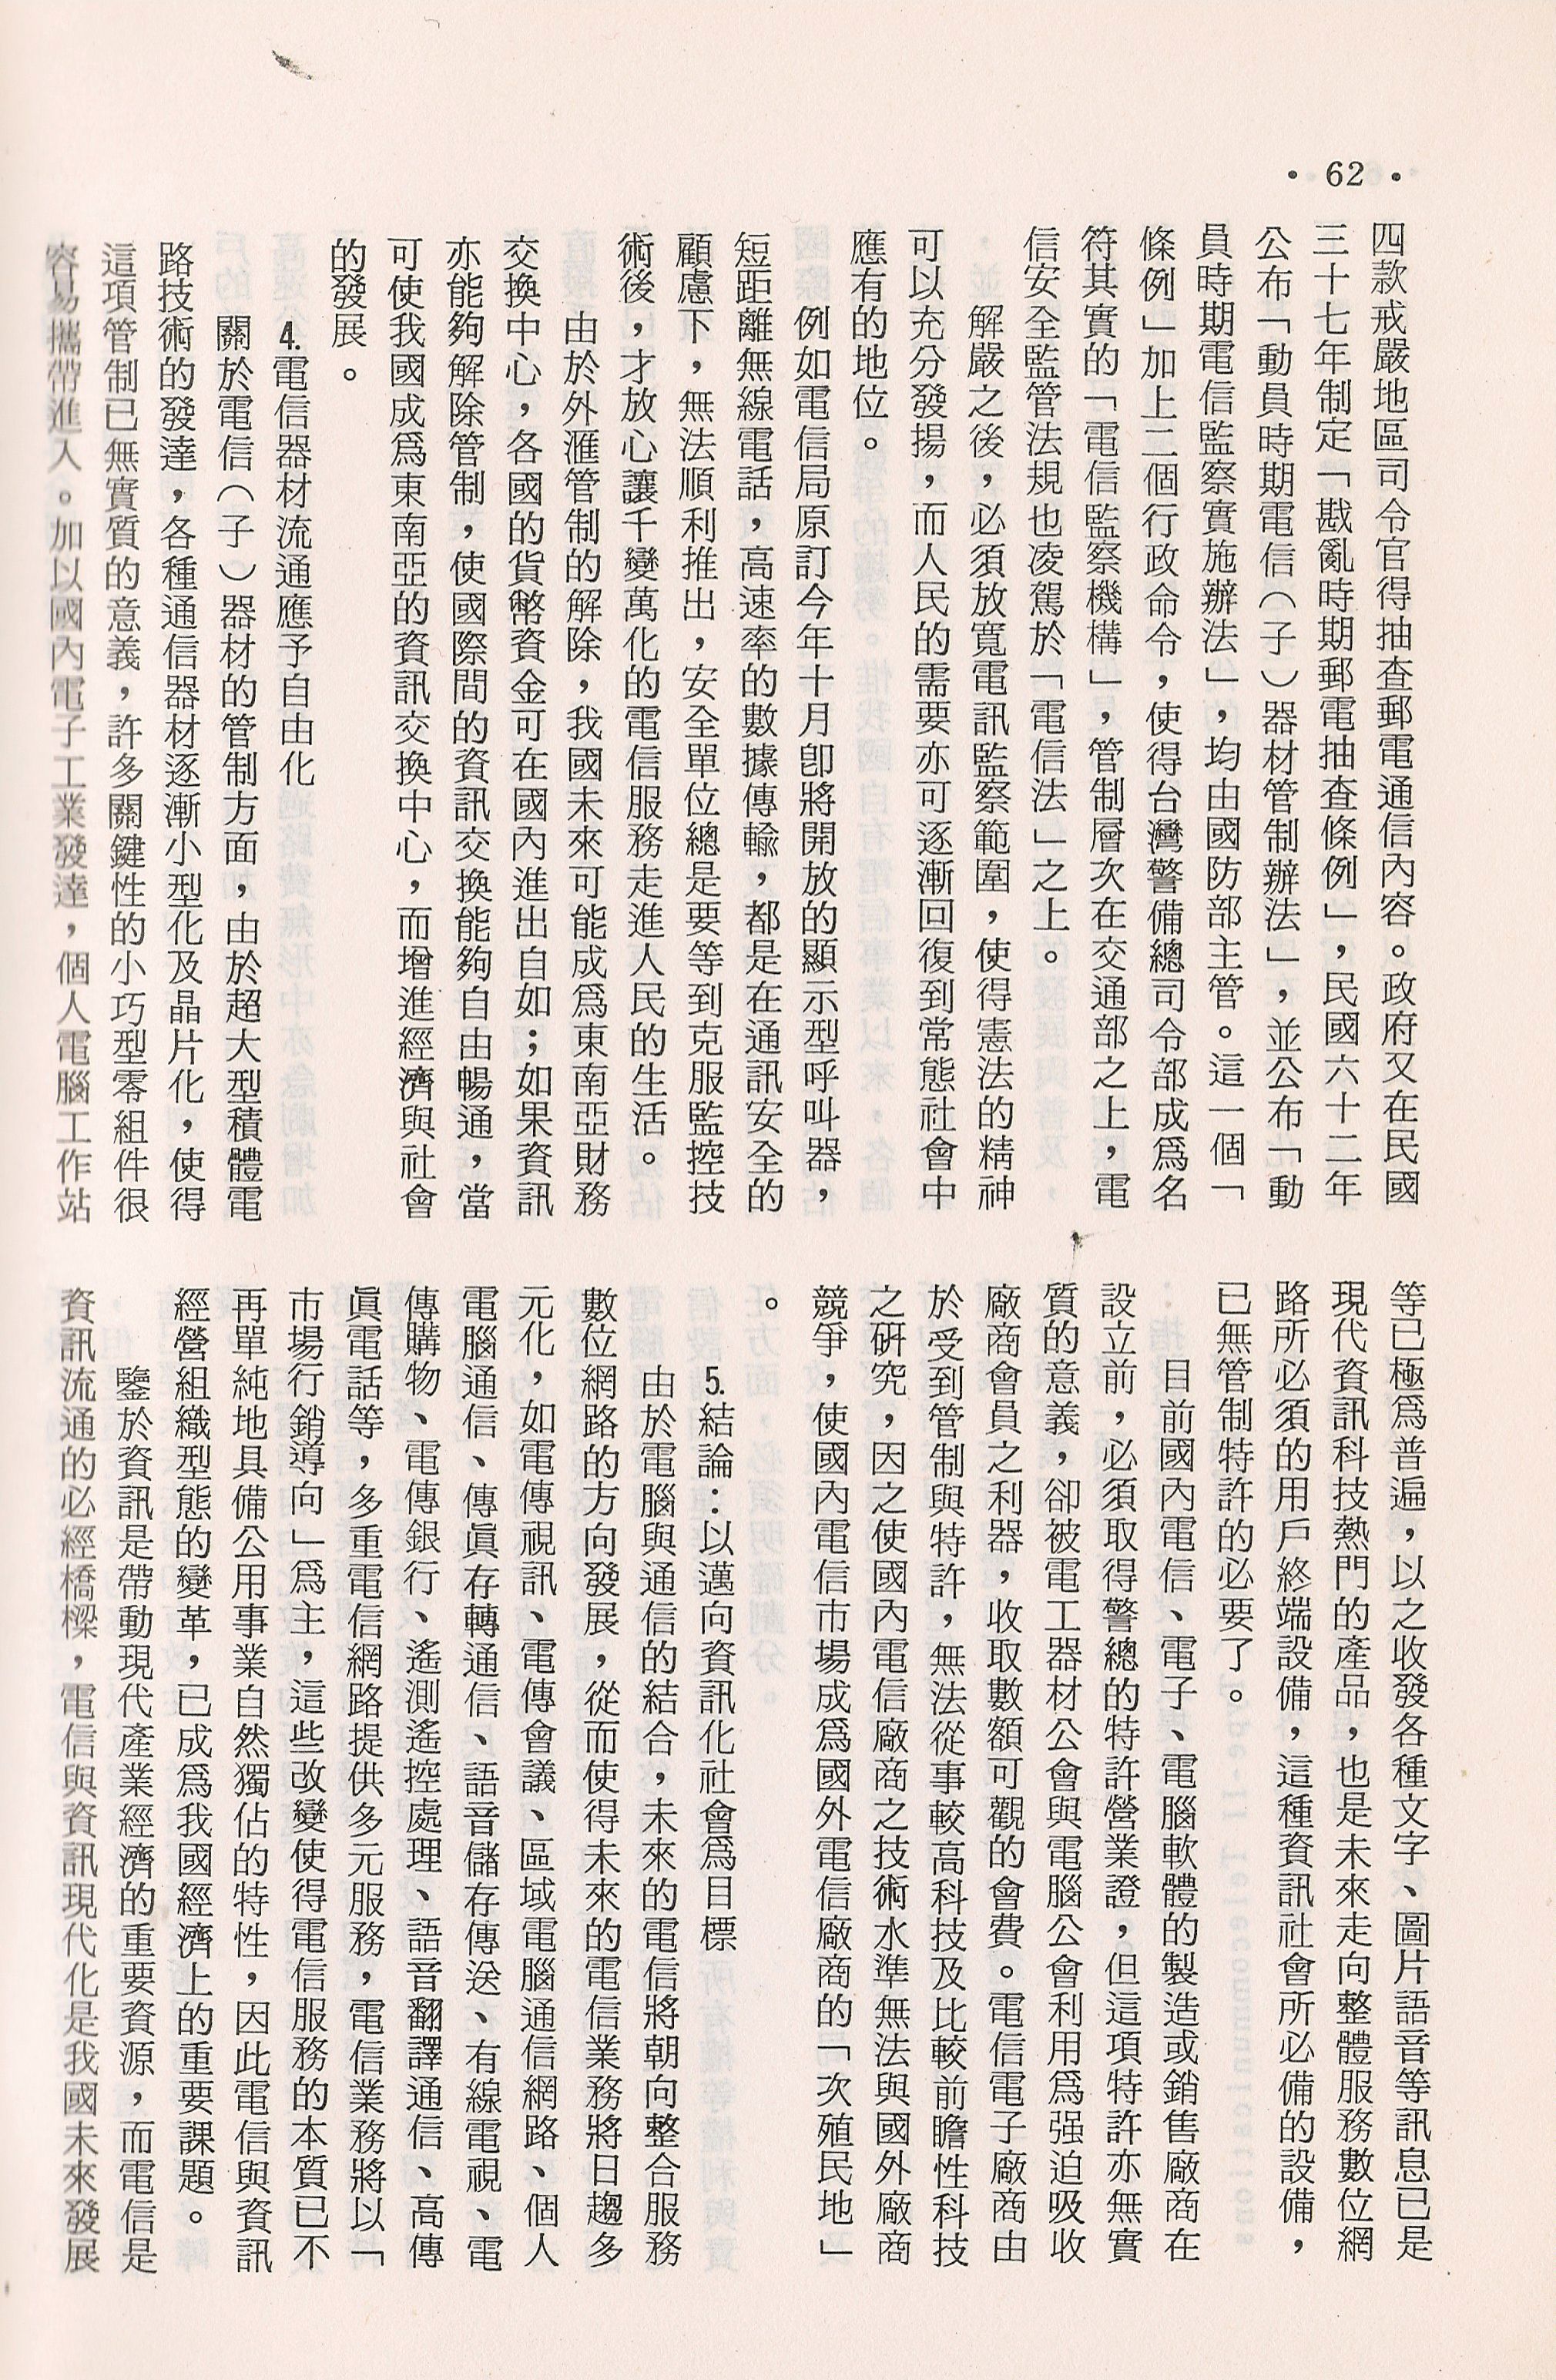 • 62 •
四款戒嚴地區司令官得抽查郵電通信內容。政府又在民國
三十七年制定「戡亂時期郵電抽查條例」，民國六十二年
公布「動員時期電信（子）器材管制辦法」，並公布「動
員時期電信監察實施辦法」，均由國防部主管。這一個「
條例」加上二個行政命令，使得台灣警備總司令部成爲名
符其實的「電信監察機構」，管制層次在交通部之上，電
信安全監管法規也凌駕於「電信法」之上。
解嚴之後，必須放寬電訊監察範圍，使得憲法的精神
可以充分發揚，而人民的需要亦可逐漸回復到常態社會中
應有的地位。
例如電信局原訂今年十月卽將開放的顯示型呼叫器，
短距離無線電話，高速率的數據傳輸，都是在通訊安全的
顧慮下，無法順利推出，安全單位總是要等到克服監控技
術後，才放心讓千變萬化的電信服務走進人民的生活。
由於外滙管制的解除，我國未來可能成爲東南亞財務
交換中心，各國的貨幣資金可在國內進出自如；如果資訊
亦能夠解除管制，使國際間的資訊交換能夠自由暢通，當
可使我國成爲東南亞的資訊交換中心，而增進經濟與社會
的發展。
4.電信器材流通應予自由化
關於電信（子）器材的管制方面，由於超大型積體電
路技術的發達，各種通信器材逐漸小型化及晶片化，使得
這項管制已無實質的意義，許多關鍵性的小巧型零組件很
容易攜帶進入。加以國內電子工業發達，個人電腦工作站
等已極爲普遍，以之收發各種文字、圖片語音等訊息已是
現代資訊科技熱門的產品，也是未來走向整體服務數位網
路所必須的用戶終端設備，這種資訊社會所必備的設備，
已無管制特許的必要了。
目前國內電信、電子、電腦軟體的製造或銷售廠商在
設立前，必須取得警總的特許營業證，但這項特許亦無實
質的意義，卻被電工器材公會與電腦公會利用爲强迫吸收
廠商會員之利器，收取數額可觀的會費。電信電子廠商由
於受到管制與特許，無法從事較高科技及比較前瞻性科技
之硏究，因之使國內電信廠商之技術水準無法與國外廠商
競爭，使國內電信市場成爲國外電信廠商的「次殖民地」
。
5.結論：以邁向資訊化社會爲目標
由於電腦與通信的結合，未來的電信將朝向整合服務
數位網路的方向發展，從而使得未來的電信業務將日趨多
元化，如電傳視訊、電傳會議、區域電腦通信網路、個人
電腦通信、傳眞存轉通信、語音儲存傳送、有線電視、電
傳購物、電傳銀行、遙測遙控處理、語音翻譯通信、高傳
眞電話等，多重電信網路提供多元服務，電信業務將以「
市場行銷導向」爲主，這些改變使得電信服務的本質已不
再單純地具備公用事業自然獨佔的特性，因此電信與資訊
經營組織型態的變革，已成爲我國經濟上的重要課題。
鑒於資訊是帶動現代產業經濟的重要資源，而電信是
資訊流通的必經橋樑，電信與資訊現代化是我國未來發展